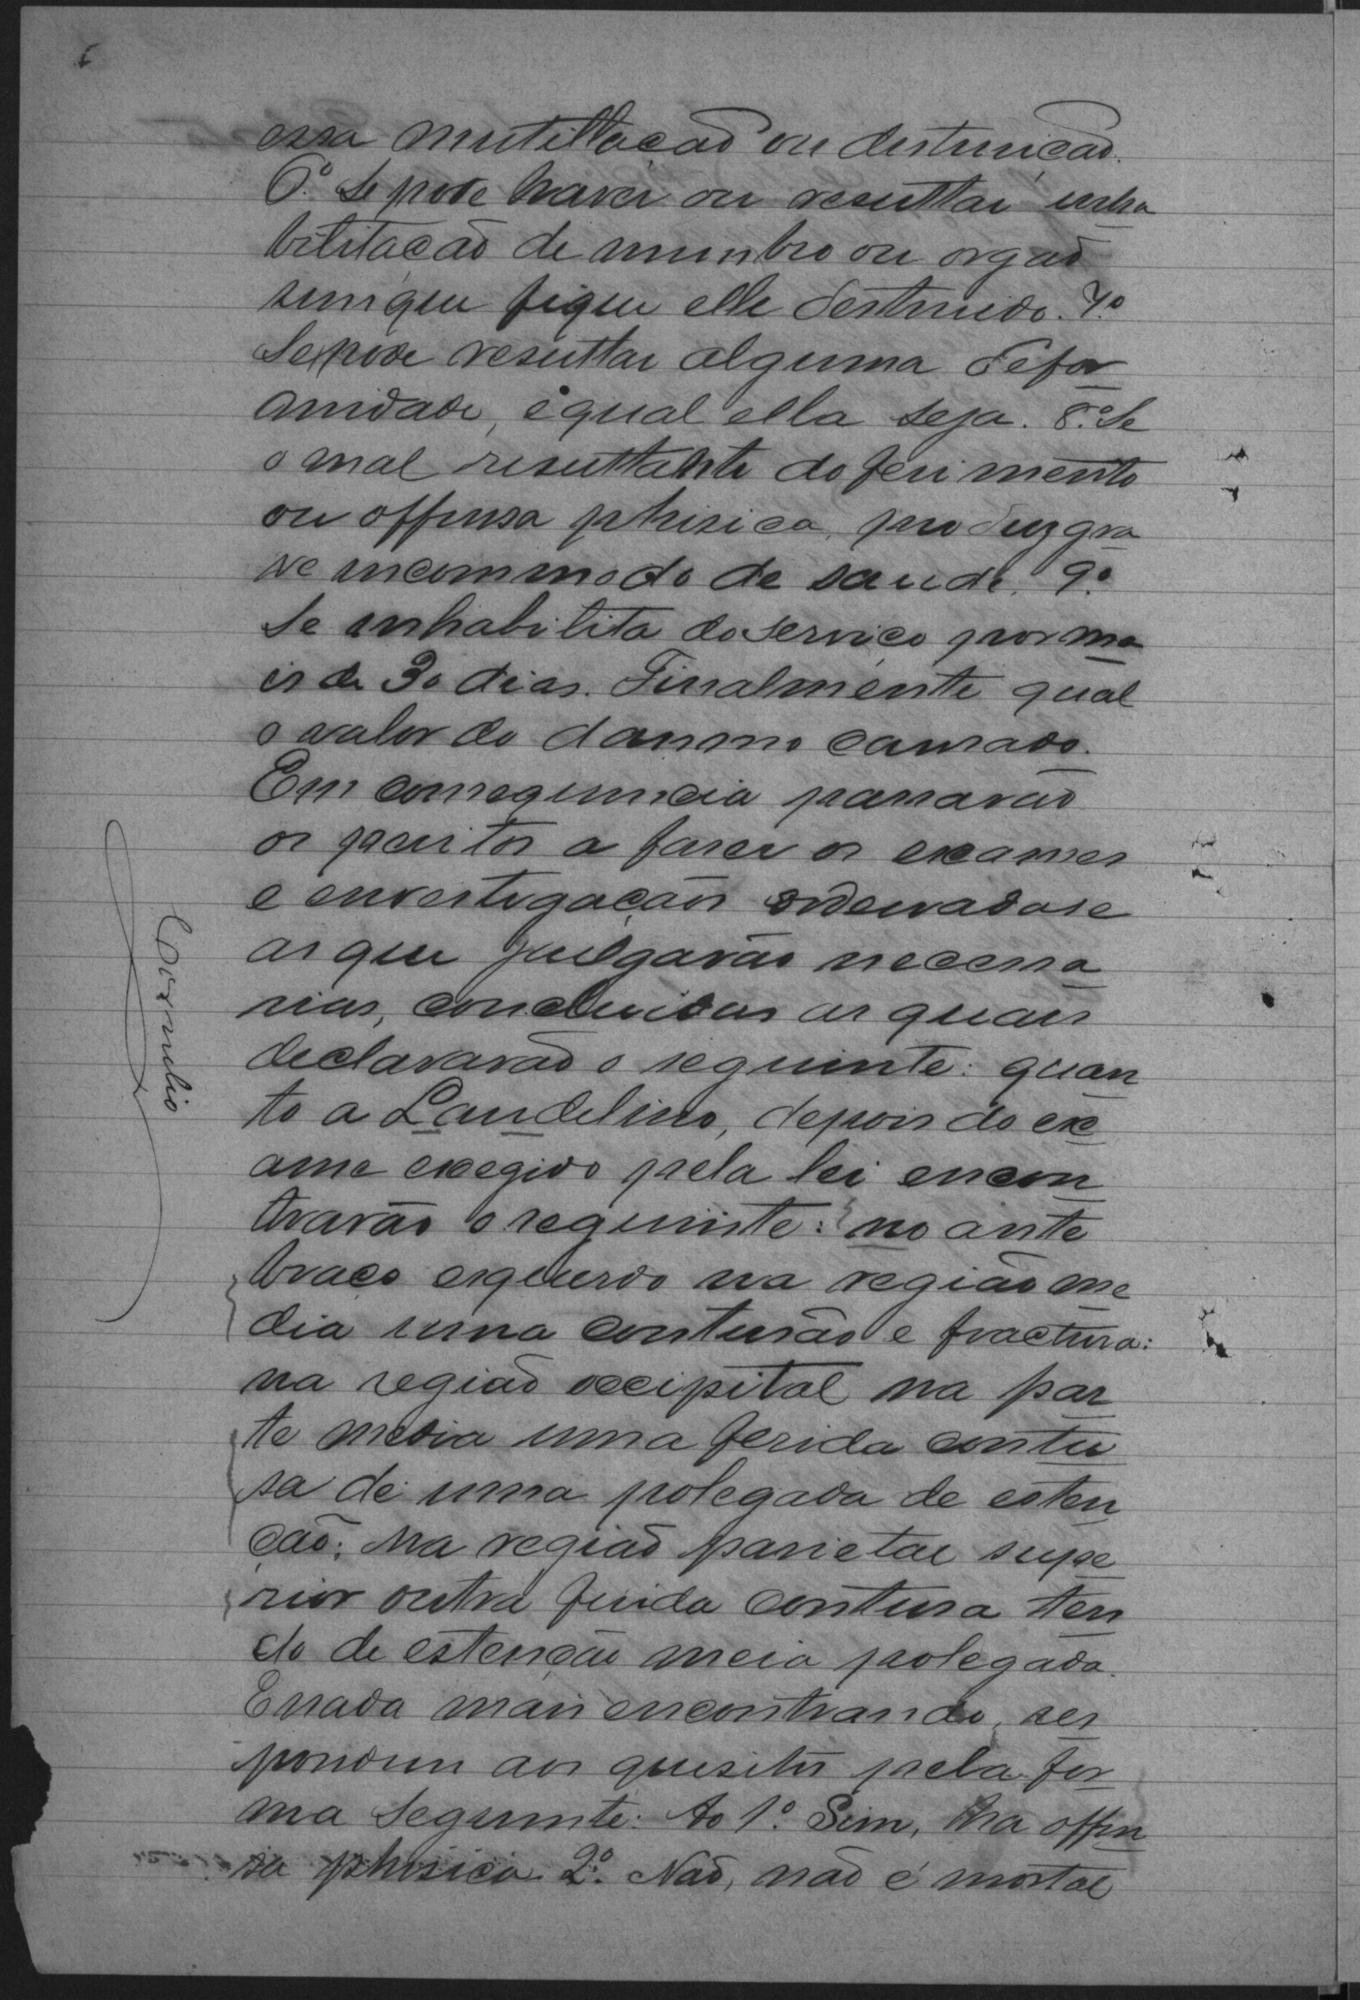 essa mutillacão ou destruicão.
6.º Se pode haver ou resultar inha
bilitacão de membro ou orgão
sem que fique elle destruido. 7.º
Se pode resultar alguma defor
midade, e qual ella seja. 8.º Se
o mal resultante do ferimento
ou offensa phisica, produz gra
ve incommodo de saude. 9.º
Se inhabilita do servico por ma
is de 30 dias. Finalmente qual
o valor do damno causado.
Em consequencia passarão
os peritos a faser os exames
e envestigacões ordenadas e
as que julgarão necessa
rias, concluidas as quais
declararão o seguinte: quan
to a Landelino, depois do ex
ame exegido pela lei encon
trarão o seguinte: no ante
braco esquerdo na região me
dia uma contusão e fractura:
na região occipital na par
te media uma ferida contu
sa de uma polegada de esten
cão; na região parietal supe
rior outra ferida contusa ten
do de estenção meia polegada.
E nada mais encontrando, res
pondem aos quesitos pela for
ma seguinte: Ao 1.º Sim, ha offen
sa phisica. 2.º Não, não é mortal
Cornelio